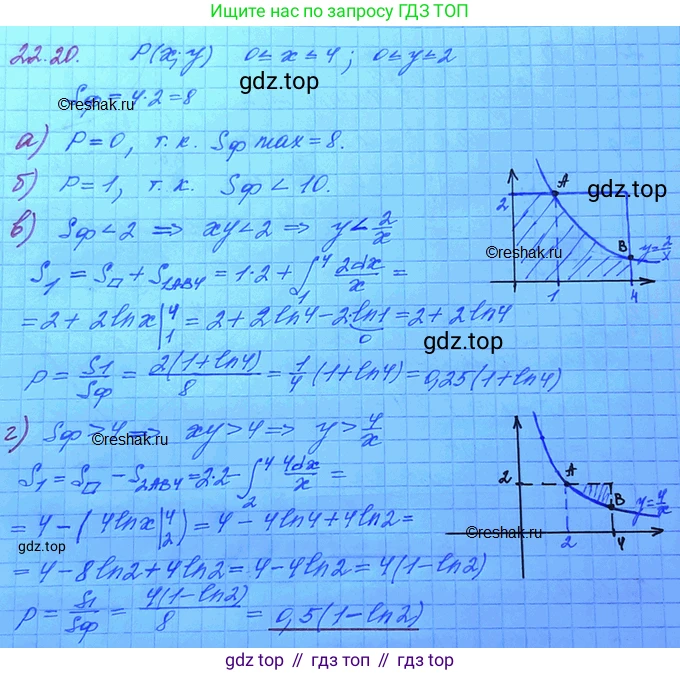 Ищите нас по запросу ГДЗ ТОП
22.20. P(x; y) 0 ≤ x ≤ 4; 0 ≤ y ≤ 2
gdz.top
Sф = 4·2 = 8
©reshak.ru
а) P = 0, т.к. Sф max = 8.
б) P = 1, т.к. Sф < 10.
в) Sф < 2 ⇒ xy < 2 ⇒ y < 2/x
S₁ = S□ + S₁AB4 = 1·2 + ∫₁⁴ 2dx/x =
= 2 + 2lnx|₁⁴ = 2 + 2ln4 − 2·ln1 = 2 + 2ln4
0
gdz.top
P = S1/Sф = 2(1+ln4)/8 = 1/4 (1+ln4) = 0,25(1+ln4)
2
A
gdz.top
B
y = 2/x
©reshak.ru
1
4
г) Sф > 4 ⇒ xy > 4 ⇒ y > 4/x
©reshak.ru
S₁ = S□ − S₂AB4 = 2·2 − ∫₂⁴ 4dx/x =
= 4 − (4lnx|₂⁴) = 4 − 4ln4 + 4ln2 =
gdz.top
= 4 − 8ln2 + 4ln2 = 4 − 4ln2 = 4(1−ln2)
P = S1/Sф = 4(1−ln2)/8 = 0,5(1−ln2)
2
A
B
y = 4/x
©reshak.ru
2
4
gdz.top // гдз.топ // гдз.top